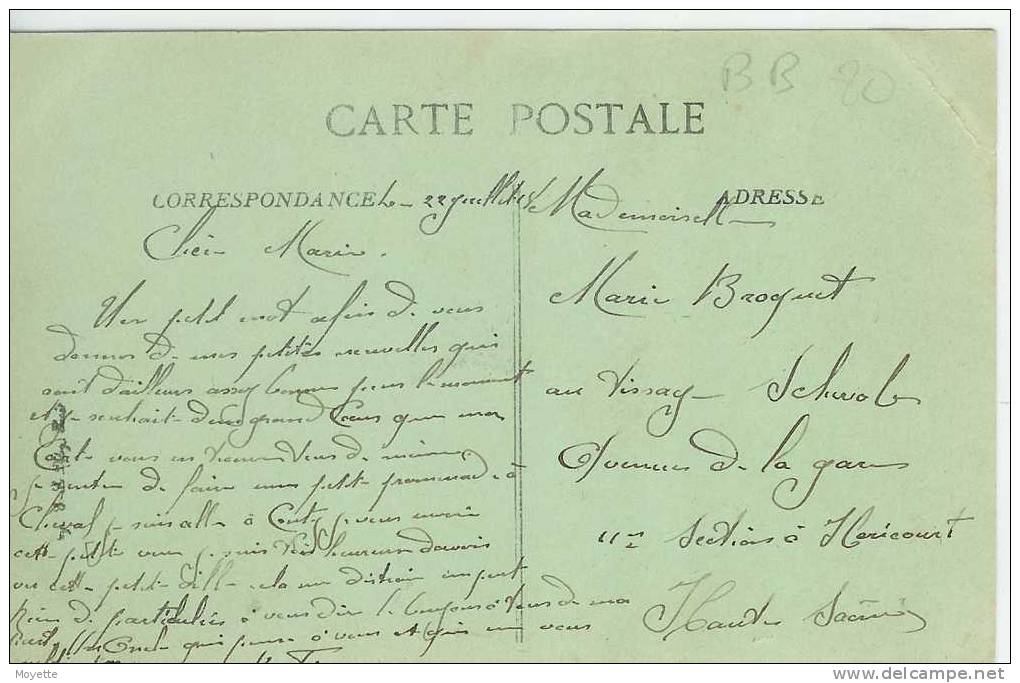 BB 20
CARTE POSTALE
CORRESPONDANCE
ADRESSE
Le 22 juillet
Chère Marie.
Un petit mot afin de vous
donner de mes petites nouvelles qui
sont d'ailleurs assez bonnes pour le moment
et je souhaite d'un grand Coeur que ma
Carte vous en trouve de même
je de faire une petite promenade à
Cheval je suis allé à pour voir
cette petite je suis très heureux d'avoir
vu cette petite ville cela me
Rien de particulier à vous dire le bonjour à de ma
part qui pense à vous et qui
Mademoiselle
Marie Broquet
au tissage Schwob
Avenue de la gare
section à Héricourt
Haute Saône
Moyette
www.delcampe.net